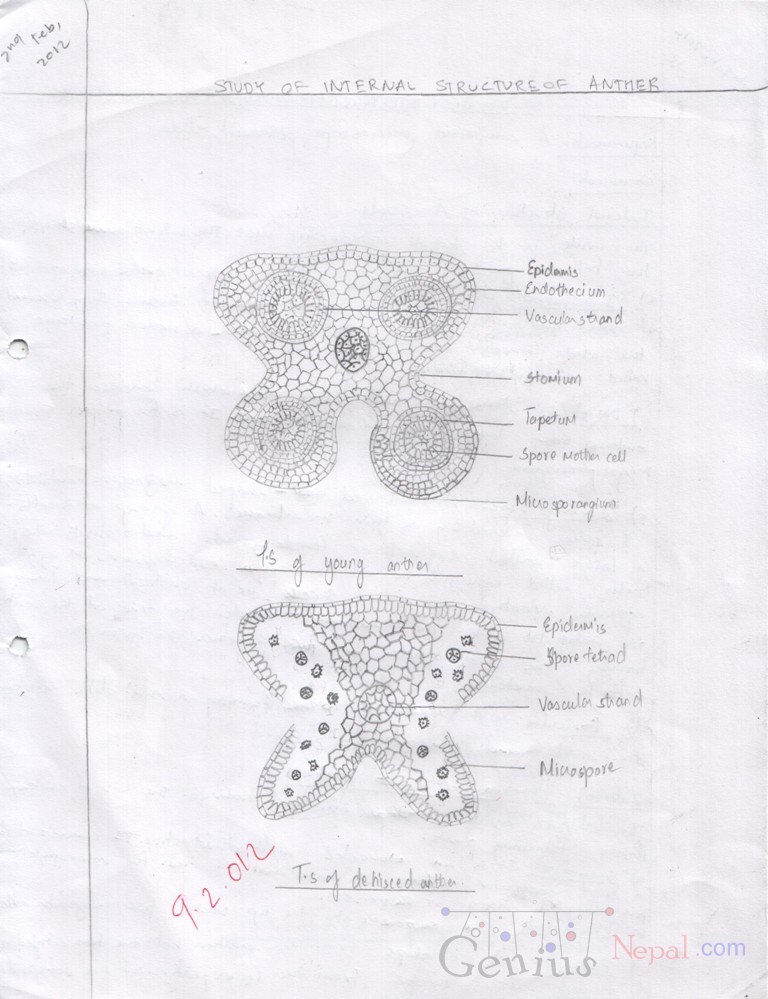 2nd Feb,
2012
STUDY OF INTERNAL STRUCTURE OF ANTHER
Epidemis
Endothecium
Vascular strand
Stomium
Tapetum
Spore Mother cell
Microsporangium
T.S of young anther
Epidermis
Spore tetrad
Vascular strand
Microspore
9.2.012
T.S of dehisced anther.
Genius Nepal.com